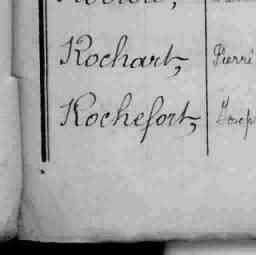 Rochart, Pierre
Rochefort, Josep